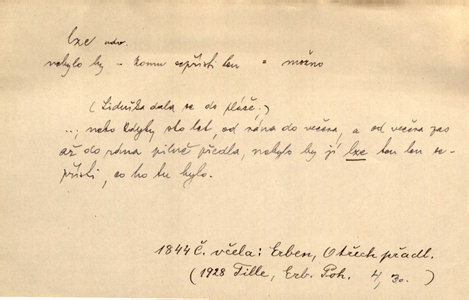 lze adv.
nebylo by – komu sepřísti len = možno
(Liduška dala se do pláče.)
..; nebo kdyby sto let, od rána do večera, a od večera zas
až do rána pilně předla, nebylo by jí lze ten len se-
přísti, co ho tu bylo.
1844 Č. včela: Erben, O třech přadl.
(1928 Tille, Erb. Poh. 4, 30.)